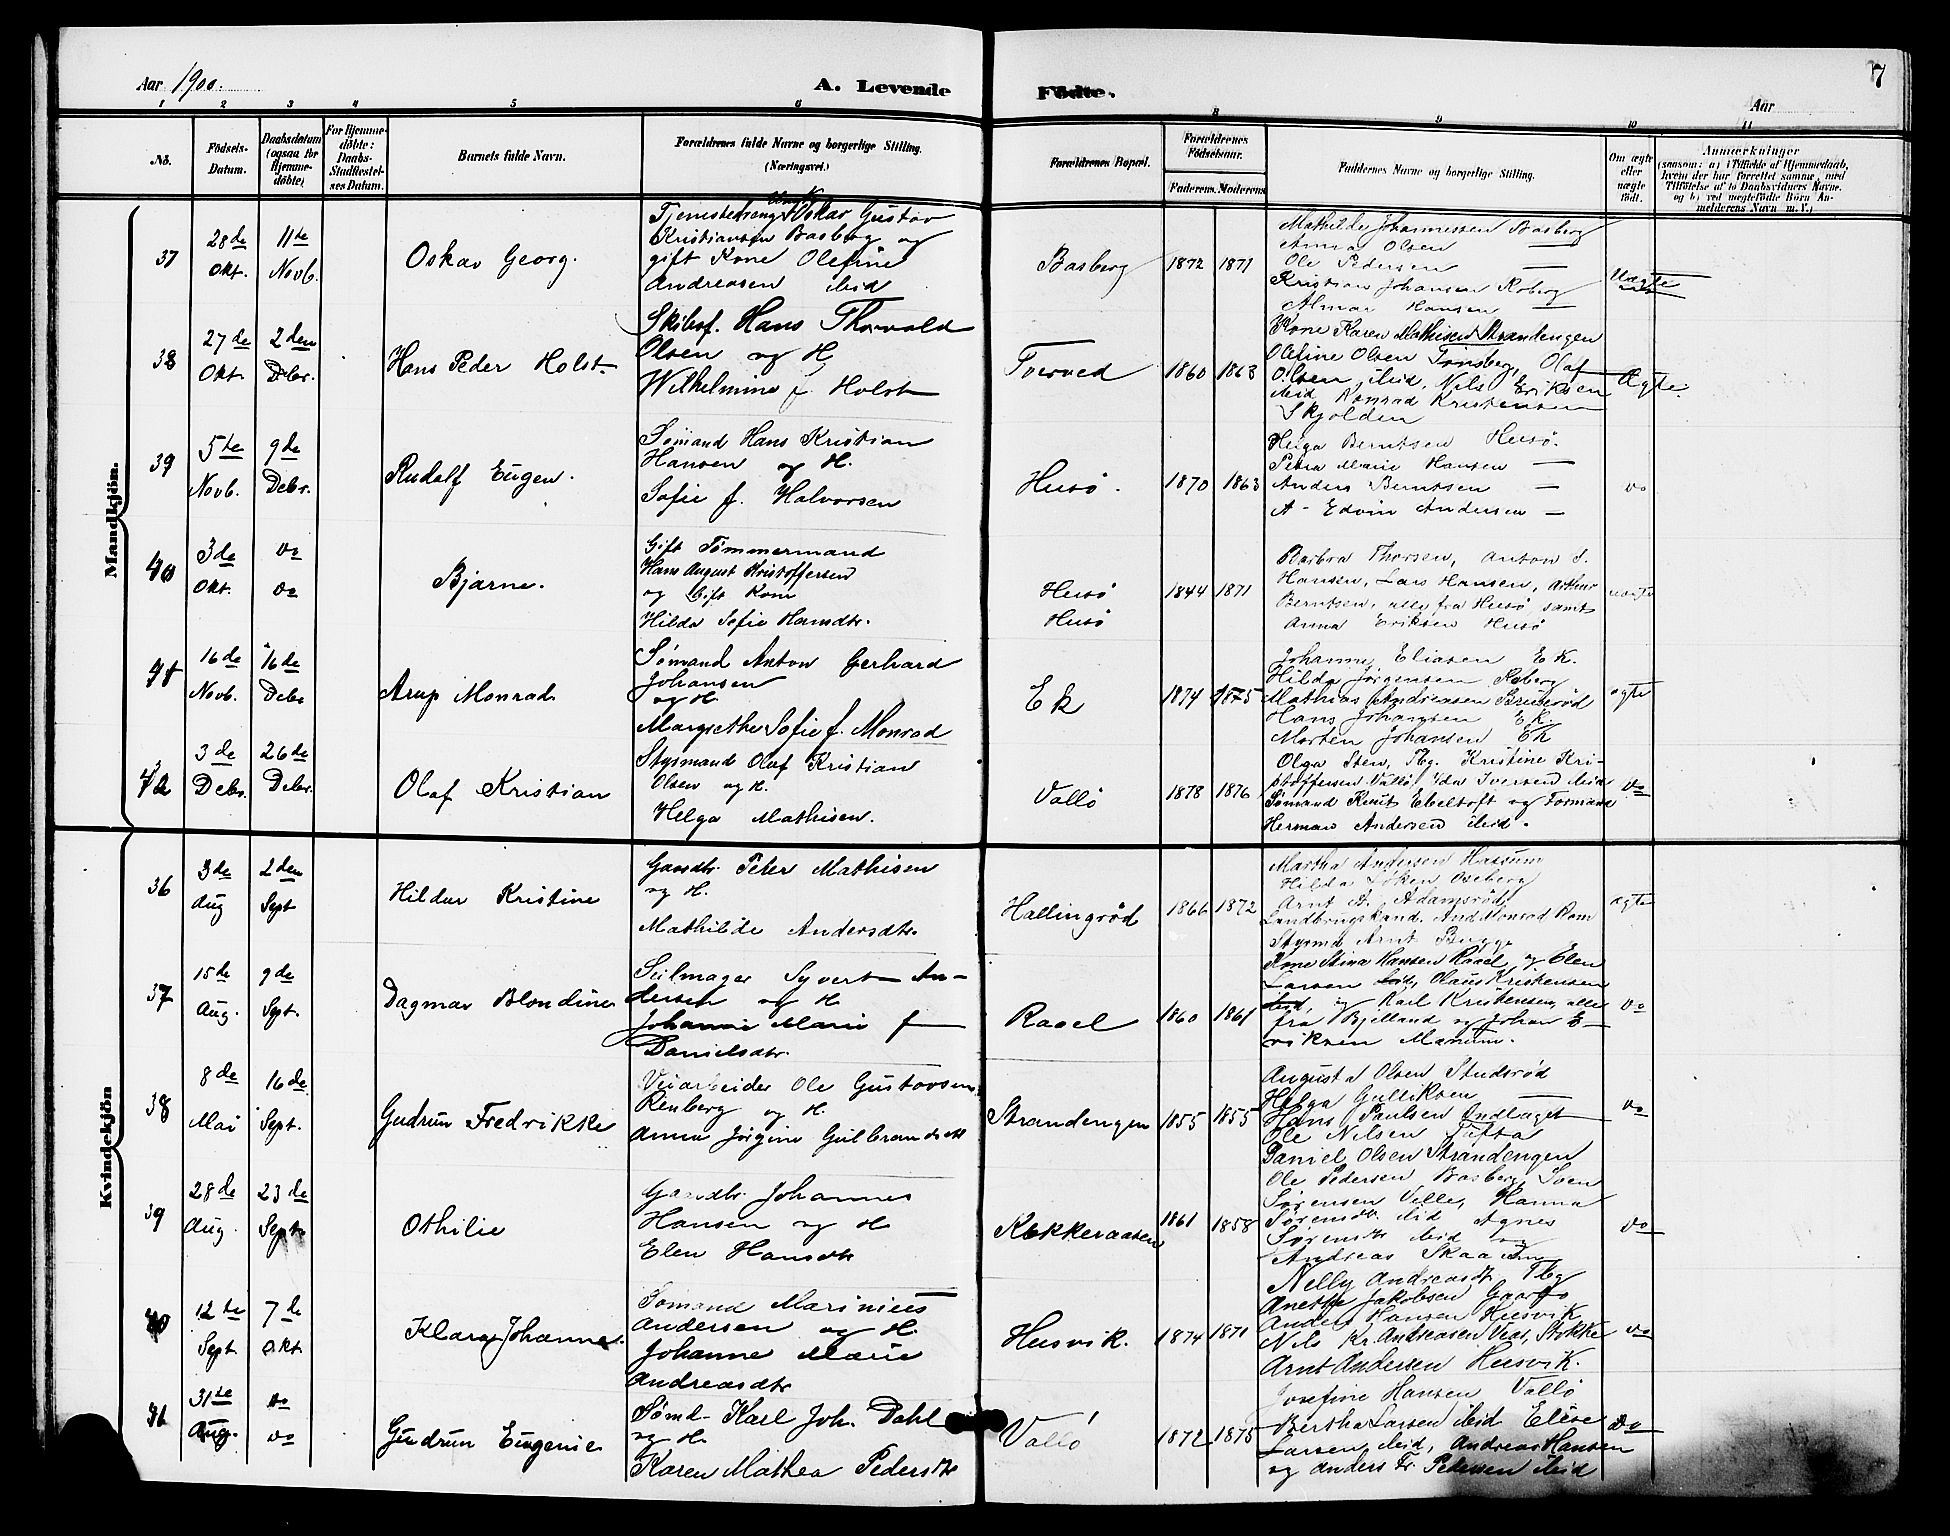 Aar 1900.
A. Levende Födte.
Aar
7
1 2 3 4 5 6 8 9 10 11
No.
Födsels-Datum.
Daabsdatum (ogsaa for Hjemmedöbte)
For Hjemmedöbte: Daabs-Stadfæstelses Datum.
Barnets fulde Navn.
Forældrenes fulde Navne og borgerlige Stilling. (Næringsvei.)
Forældrenes Bopæl.
Forældrenes Födselsaar.
Faderens. Moderens.
Faddernes Navne og borgerlige Stilling.
Om ægte eller uægte født.
Anmærkninger
(saasom: a) i Tilfælde af Hjemmedaab, hvem der har forrettet samme, med Tilföielse af to Daabsvidners Navne. og b) ved uægtefødte Børn Anmelderens Navn m. V.)
Mandkjön.
37
28de Okt.
11te Novb.
Oskar Georg.
Tjenestedreng Oskar Gustav
Kristiansen Basberg og
gift Kone Olefine
Andreasen ibid
Basberg 1872 1871
Mathilde Johannessen Basberg
Anna Olsen —
Ole Pedersen —
Kristian Johansen Roberg
Almar Hansen —
Uægte
38
27de Okt.
2den Debr.
Hans Peder Holst
Skibsf. Hans Thorvald
Olsen og H.
Wilhelmine f. Holst
Tverved 1860 1863
Kone Karen Mathisen Strandengen
Olefine Olsen Tönsberg, Olaf
Olsen, ibid, Nils Eriksen
ibid Konrad Kristensen
Skjolden
Ægte.
39
5te Novb.
9de Debr.
Rudolf Eugen.
Sömand Hans Kristian
Hansen og H.
Sofie f. Halvorsen
Husö. 1870 1863
Helga Berntsen Husö.
Petra Marie Hansen —
Anders Berntsen —
A- Edvin Andersen —
do
40
3de Okt.
do do
Bjarne.
Gift Tömmermand
Hans August Kristoffersen
og Gift Kone
Hilda Sofie Hansdtr.
Husö
Husö
1844 1871
Barbra Thorsen, Anton S.
Hansen, Lars Hansen, Arthur
Berntsen, alle fra Husö samt
Anna Eriksen Husö
uægte
41
16de Novb.
16de Debr
Arup Monrad
Sömand Anton Gerhard
Johansen
og H.
Margrethe Sofie f. Monrad
Ek 1874 1875
Johanne Eliasen Ek.
Hilda Jörgensen Roberg
Mathias Andreasen Bruseröd
Hans Johansen Ek.
Morten Johansen Ek
ægte
42
3de Debr.
26de Debr.
Olaf Kristian
Styrmand Olaf Kristian
Olsen og H.
Helga Mathisen.
Vallö 1878 1876
Olga Sten, Tbg. Kristine Kri-
stoffersen Vallö, Ida Iversen ibid
Sömand Knut Ebeltoft og Formand
Herman Andersen ibid.
do
Kvindekjön
36
3de Aug
2den Sept
Hildur Kristine
Gaardbr. Peter Mathisen
og H.
Mathilde Andersdtr.
Hallingröd 1866 1872
Martha Andersen Hassum
Hilda Löken Oseberg
Arnt A. Adamsröd
Landbrugskand. And. Monrad Rom
Styrmd Arnt Bugge
ægte
37
15de Aug.
9de Sept.
Dagmar Blondine
Seilmager Syvert An-
dersen og H
Johanne Marie f
Danielsdtr.
Rael 1860 1861
Kone Stina Hansen Rael, og Elen
Larsen ibid, Olaus Kristensen
ibid, og Karl Kristensen, alle
fra Bjelland og Johan E-
riksen Manum.
do
38
8de Mai
16de Sept.
Gudrun Fredrikke
Veiarbeider Ole Gustavsen
Rinberg og H.
Anna Jörgine Gulbrandsdtr
Strandengen 1855 1855
August Olsen Studsröd
Helga Gulliksen —
Hans Paulsen Indlaget
Ole Nilsen Tufta
Daniel Olsen Strandengen
do
39
28de Aug.
23de Sept
Othilie
Gaardbr. Johannes
Hansen og H
Elen Hansdtr
Kokkeraasen 1861 1858
Ole Pedersen Basberg, Sven
Sörensen Velle, Hanna
Sörensdtr. ibid Agnes
Sörensdtr ibid og
Andreas Skaaum
do
40
12te Sept
7de Okt
Klara Johanne.
Sömand Marinius
Andersen og H.
Johanne Marie
Andreasdtr
Husvik. 1874 1871
Nelly Andreasdtr. Tbg
Anette Jakobsen Gaarbo
Anders Hansen Husvik
Nils Kr. Andreasen Veas, Stokke
Arnt Andersen Husvik.
do
41
31te Aug.
do do
Gudrun Eugenie
Sömd. Karl Joh. Dahl
og H.
Karen Mathea Pedersdtr
Vallö 1872 1875
Josefine Hansen Vallö
Bertha Larsen ibid Elise
Larsen, ibid, Andreas Hansen
og Anders Fr. Pedersen ibid
do